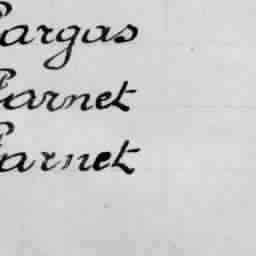 argas
arnet
arnet